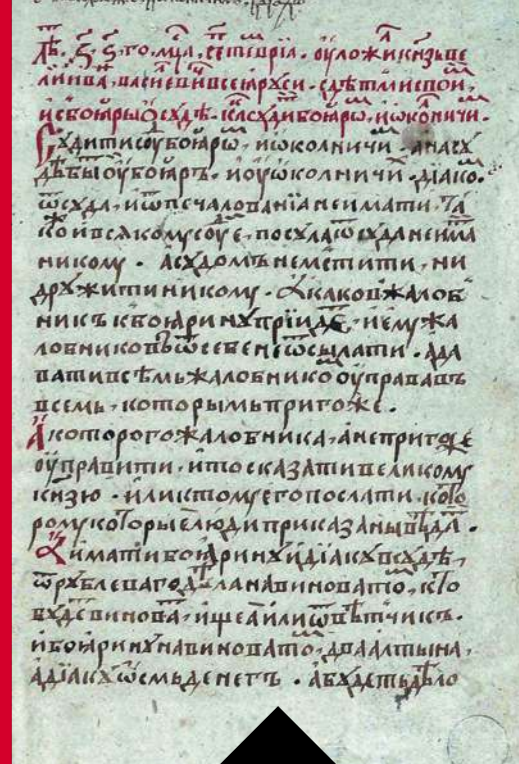 лѣ. ҂ѕ҃. ѕ҃. го, мц҃а, сеⷫ҇тевріа. оуложиⷧ кн҃зь ве
ликіи иваⷩ, васиⷧевиⷱ всеꙗ руси. с дѣтми свои,
и с боꙗры ѡ сүдѣ. каⷦ сүдити боꙗрѡⷨ, и ѡкоⷧничиⷨ.
Сүдити сүⷣ боꙗрѡⷨ, и ѡколничиⷨ. а на сү
дѣ быⷮ оу боꙗръ. и оу ѡколничиⷯ. діакоⷨ.
ѿ сүда, и ѿ печалованїа не имати, Та
коⷤ и всякому соуⷣе, посула ѿ суда не има
никому. А судомъ не мстити, ни
дружити никому. А каковⷤ жалоб
никъ к боꙗринү прїидеⷮ, и ему жа
лобниковъ ѿ себе не ѿсылати. а да
вати всѣмь жалобникоⷨ оуправа въ
всемь, которымь пригоже.
А которого жалобника, а не пригоже
оуправити, и то сказати великому
кн҃зю. или к тому его послати. кото
рому которые люди приказаны вѣдаⷮ.
А имати боꙗринү и діакү в сүдѣ,
ѿ рублеваго дѣла на виноватоⷨ, кто
будеⷮ виноваⷮ, ищеа или ѿвѣтчикъ.
и боꙗринү на виноватоⷨ, два алтына,
а діакү ѡсмь денегъ. А бүдеть дѣло